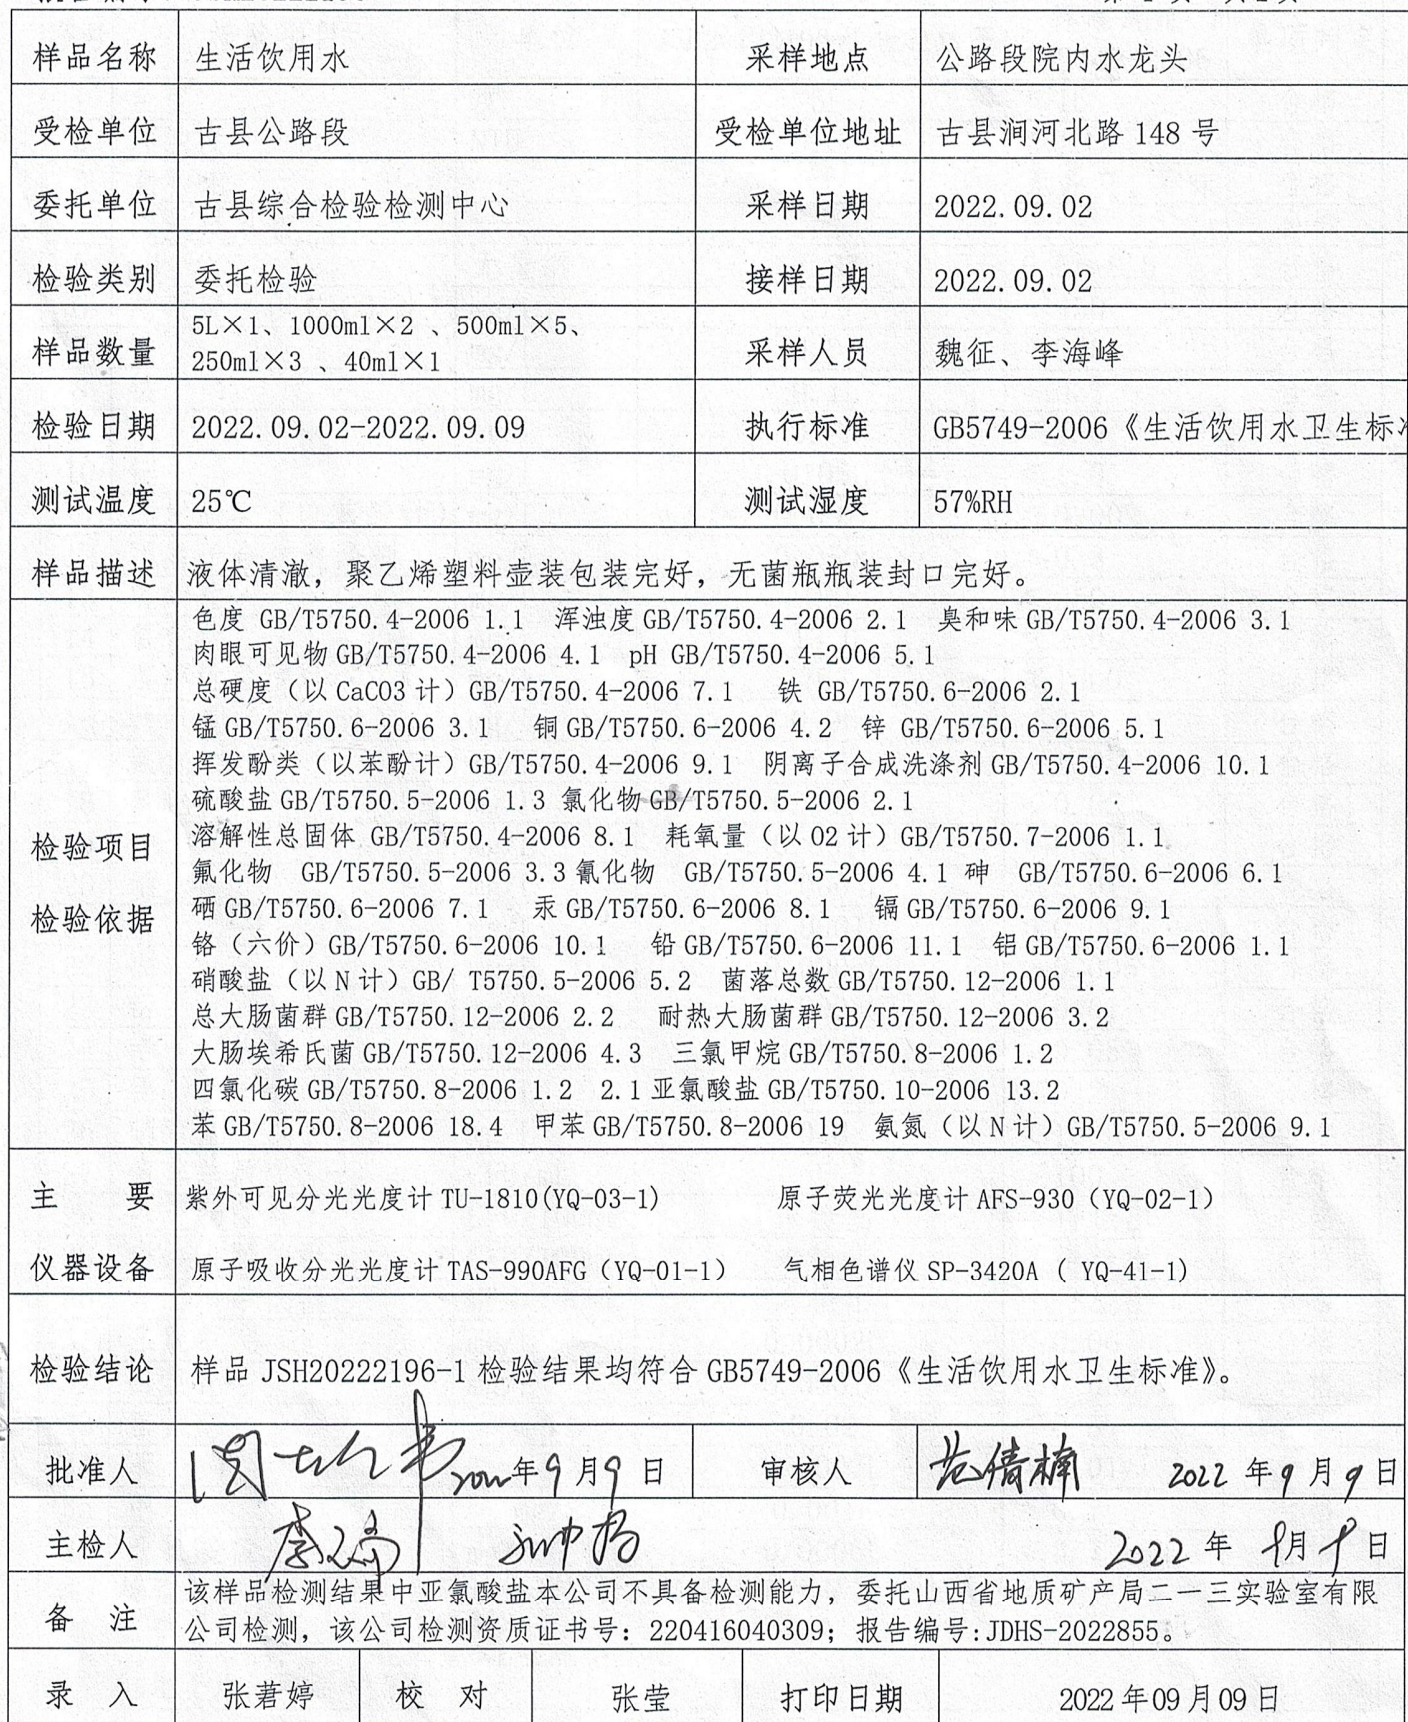 样品名称 生活饮用水 采样地点 公路段院内水龙头
受检单位 古县公路段 受检单位地址 古县涧河北路 148 号
委托单位 古县综合检验检测中心 采样日期 2022.09.02
检验类别 委托检验 接样日期 2022.09.02
样品数量 5L×1、1000ml×2 、500ml×5、
250ml×3 、40ml×1 采样人员 魏征、李海峰
检验日期 2022.09.02-2022.09.09 执行标准 GB5749-2006《生活饮用水卫生标
测试温度 25℃ 测试湿度 57%RH
样品描述 液体清澈，聚乙烯塑料壶装包装完好，无菌瓶瓶装封口完好。
检验项目
检验依据
色度 GB/T5750.4-2006 1.1 浑浊度 GB/T5750.4-2006 2.1 臭和味 GB/T5750.4-2006 3.1
肉眼可见物 GB/T5750.4-2006 4.1 pH GB/T5750.4-2006 5.1
总硬度（以 CaCO3 计）GB/T5750.4-2006 7.1 铁 GB/T5750.6-2006 2.1
锰 GB/T5750.6-2006 3.1 铜 GB/T5750.6-2006 4.2 锌 GB/T5750.6-2006 5.1
挥发酚类（以苯酚计）GB/T5750.4-2006 9.1 阴离子合成洗涤剂 GB/T5750.4-2006 10.1
硫酸盐 GB/T5750.5-2006 1.3 氯化物 GB/T5750.5-2006 2.1
溶解性总固体 GB/T5750.4-2006 8.1 耗氧量（以 O2 计）GB/T5750.7-2006 1.1
氟化物 GB/T5750.5-2006 3.3 氰化物 GB/T5750.5-2006 4.1 砷 GB/T5750.6-2006 6.1
硒 GB/T5750.6-2006 7.1 汞 GB/T5750.6-2006 8.1 镉 GB/T5750.6-2006 9.1
铬（六价）GB/T5750.6-2006 10.1 铅 GB/T5750.6-2006 11.1 铝 GB/T5750.6-2006 1.1
硝酸盐（以 N 计）GB/ T5750.5-2006 5.2 菌落总数 GB/T5750.12-2006 1.1
总大肠菌群 GB/T5750.12-2006 2.2 耐热大肠菌群 GB/T5750.12-2006 3.2
大肠埃希氏菌 GB/T5750.12-2006 4.3 三氯甲烷 GB/T5750.8-2006 1.2
四氯化碳 GB/T5750.8-2006 1.2 2.1 亚氯酸盐 GB/T5750.10-2006 13.2
苯 GB/T5750.8-2006 18.4 甲苯 GB/T5750.8-2006 19 氨氮（以 N 计）GB/T5750.5-2006 9.1
主 要 紫外可见分光光度计 TU-1810(YQ-03-1) 原子荧光光度计 AFS-930（YQ-02-1）
仪器设备 原子吸收分光光度计 TAS-990AFG（YQ-01-1） 气相色谱仪 SP-3420A ( YQ-41-1)
检验结论 样品 JSH20222196-1 检验结果均符合 GB5749-2006《生活饮用水卫生标准》。
批准人 2022年9月9日 审核人 范倩楠 2022 年9月9日
主检人 2022 年 9月9日
备 注 该样品检测结果中亚氯酸盐本公司不具备检测能力，委托山西省地质矿产局二一三实验室有限
公司检测，该公司检测资质证书号：220416040309；报告编号:JDHS-2022855。
录 入 张若婷 校 对 张莹 打印日期 2022年09月09日